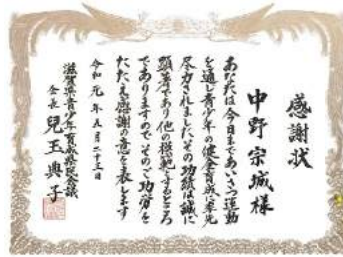 感謝状
中野宗城様
あなたは今日まであいさつ運動
を通し青少年の健全育成に率先
尽力されましたその功績は誠に
顕著であり他の模範とするところ
でありますのでそのご功労を
たたえ感謝の意を表します
令和元年五月二十三日
滋賀県青少年育成県民会議
会長 兒玉典子